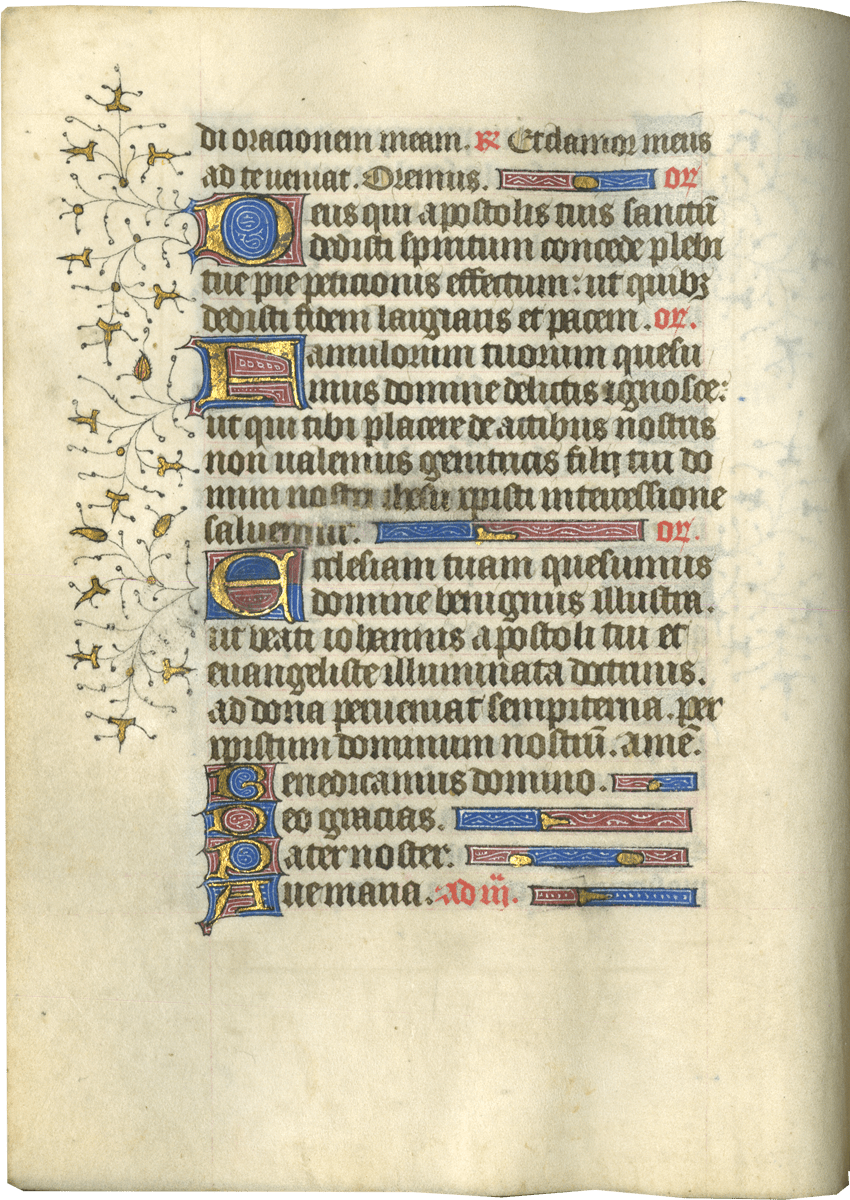 di orationem meam. R Et clamor meus
ad te veniat. Oremus. or
Deus qui apostolis tuis sanctū
dedisti spiritum concede plebi
tue pie peticionis effectum: ut quibꝫ
dedisti fidem largiaris et pacem. or.
Famulorum tuorum quesu
mus domine delictis ignosce:
ut qui tibi placere de actibus nostris
non ualemus genitricis filij tui do
mini nostri ihesu xpisti intercessione
saluemur. or.
Ecclesiam tuam quesumus
domine benignus illustra.
ut beati iohannis apostoli tui et
euangeliste illuminata doctrinis.
ad dona perueniat sempiterna. per
xpistum dominum nostrū. amē.
Benedicamus domino.
Deo gracias.
Pater noster.
Aue maria. ad iii.